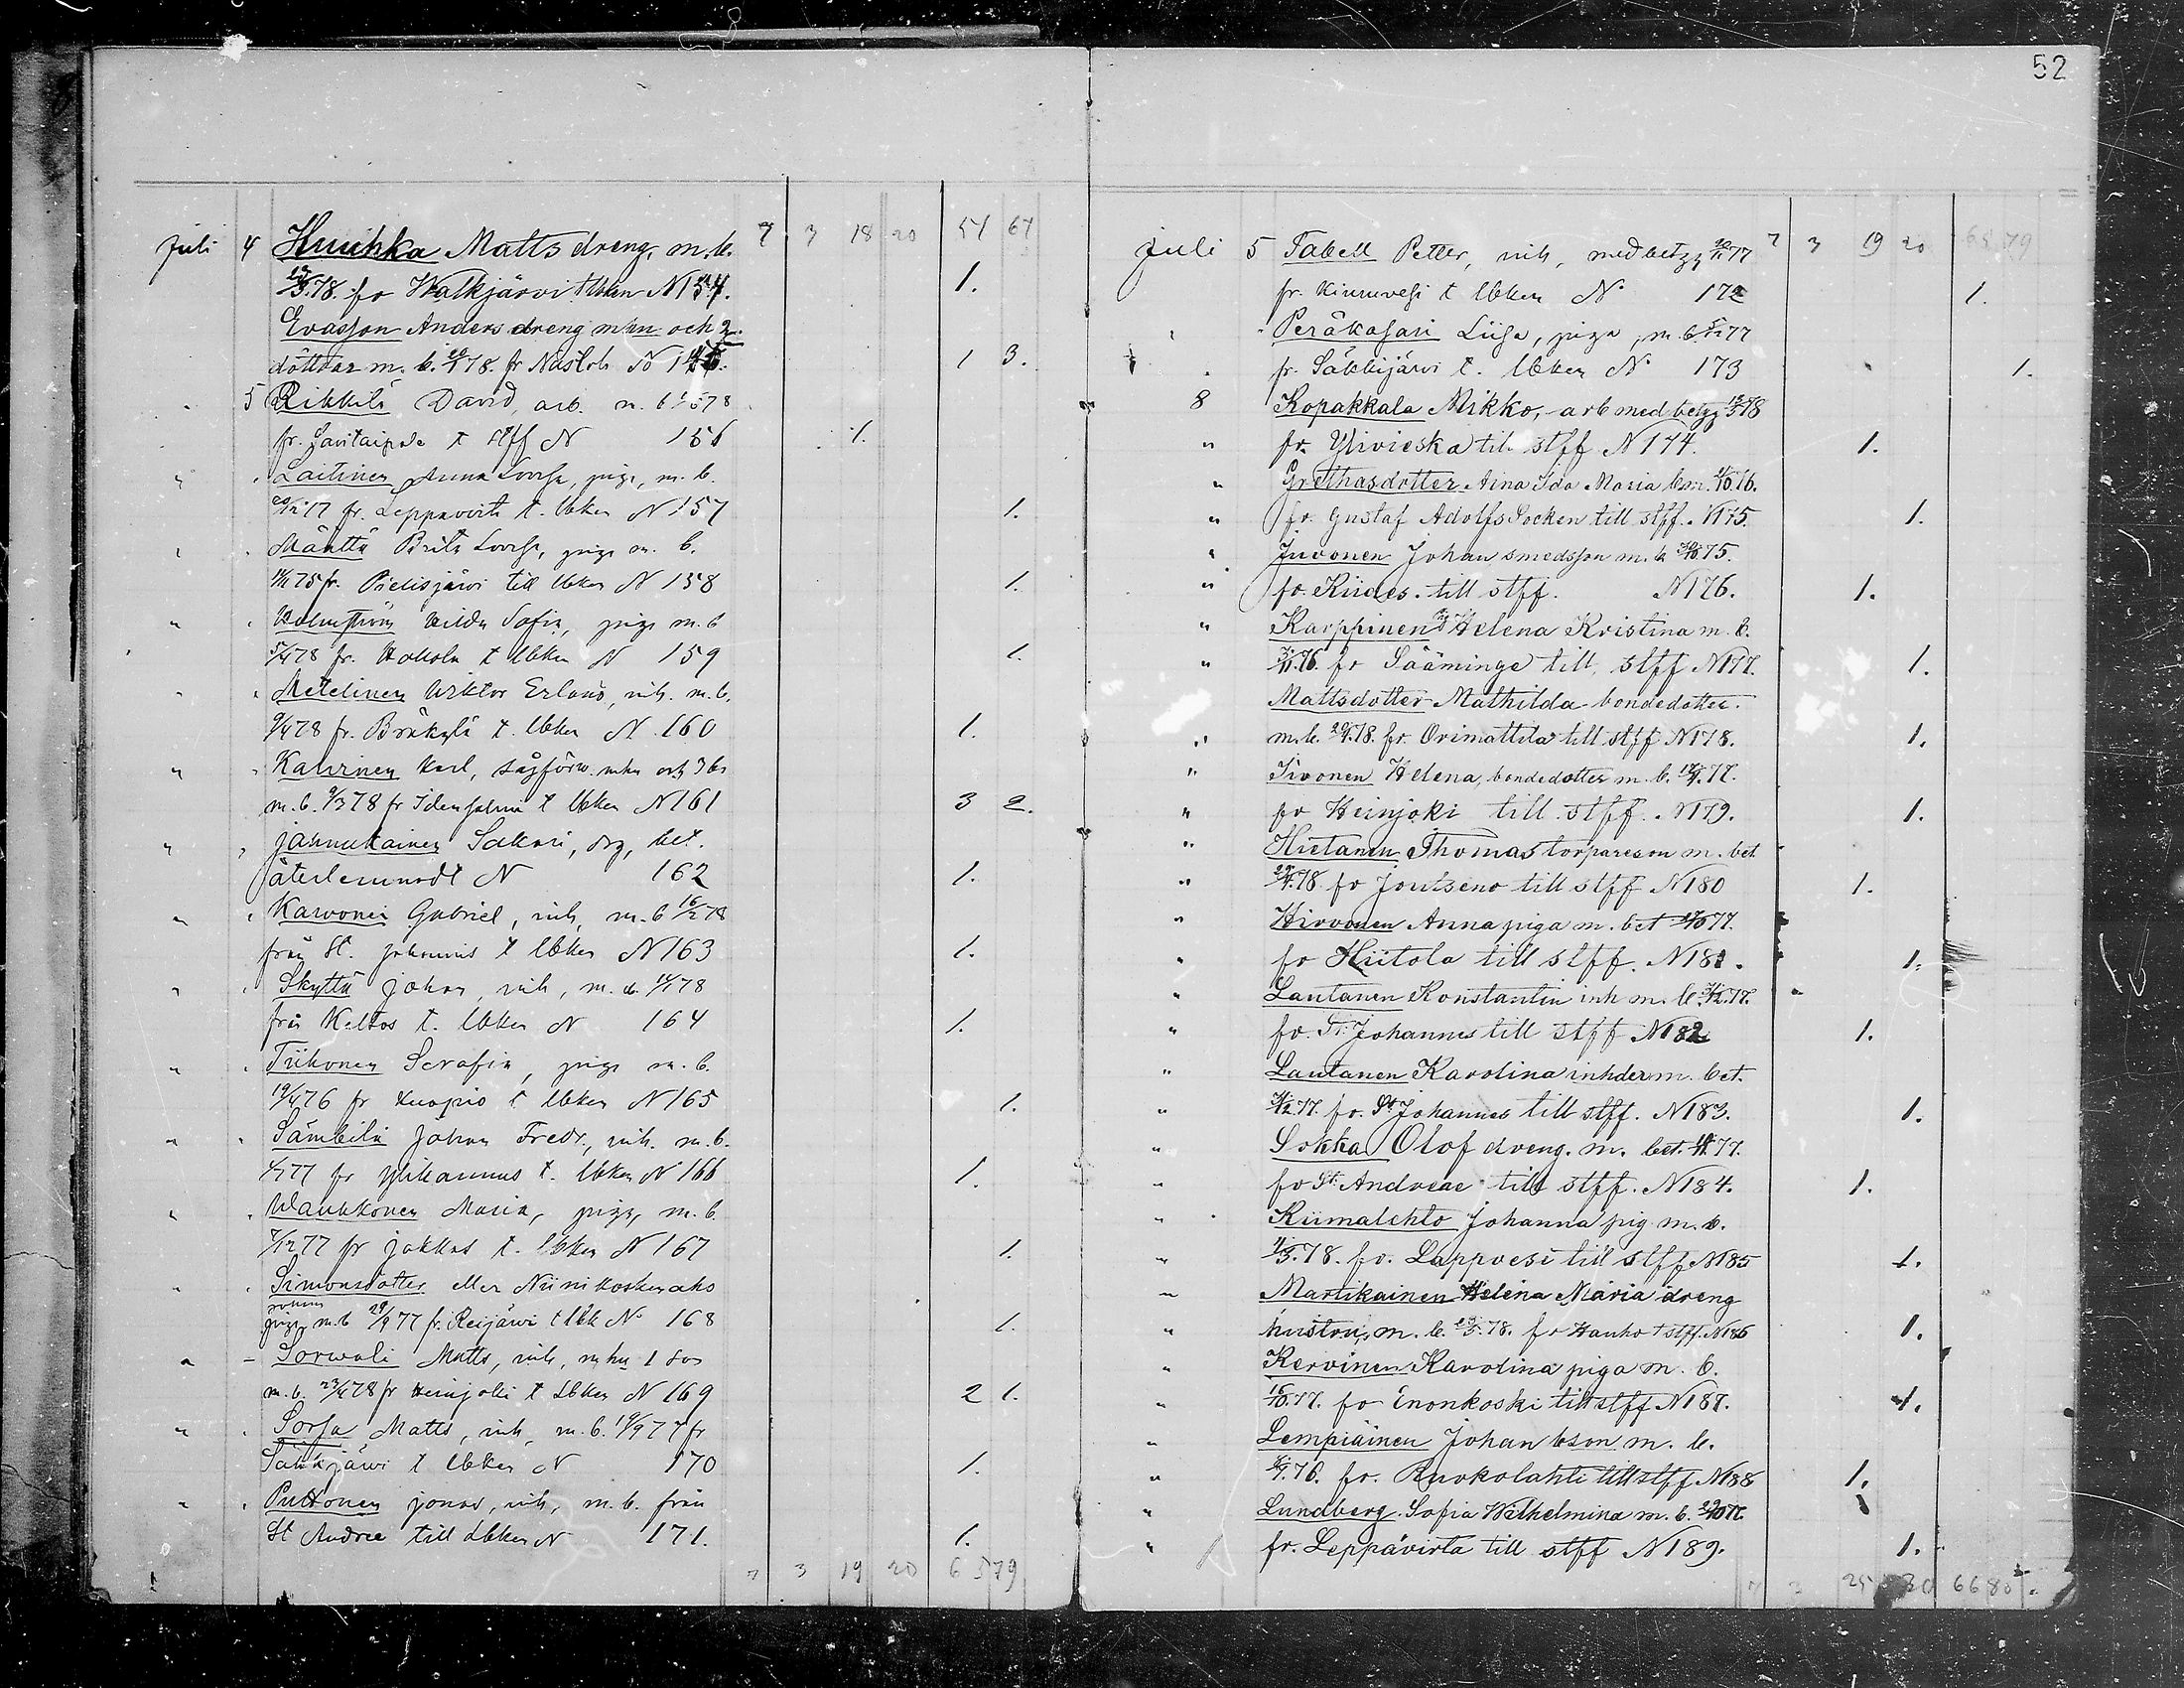 52
7 3 18 20 51 67
Juli 4 Huuhka Matts dreng. m. b.
fr Walkjärvi t Uskn N 154. 1.
Evasson Anders dreng mhu och 2
döttrar m. b. 20/4 78. fr Nusloh No 1 3.
" 5 Rikkilä David, arb. m. b 78
fr. Savitaipale t stff N 156 1.
" Laitinen Anna Lovisa, piga, m. b.
20/12 77 fr. Leppävirta t. Uskn N 157 1.
" Mänttä Brita Lovisa, piga m. b.
75 fr. Pielisjärvi till Uskn N 158 1.
" Holmström Hilda Sofia, piga m. b
5/4 78 fr. Kakola t Uskn N 159 1.
" Metelinen Wiktor Erland, inh. m. b.
9/4 78 fr. Bräkylä t. Uskn N 160 1.
" Kaurinen Karl, sågförv. mhu och 3 br
m. b. 9/3 78 fr Idensalmi t Uskn N 161 3 2.
" Jannukainen Sakari, drg, bet.
återlemnadt N 162 1.
" Karvonen Gabriel, inh, m. b 16/2 78
från St. Johannis t Uskn N 163 1.
" Skyttä Johan, inh, m. b. 78
från Keltos t. Uskn N 164 1.
" Tiihonen Serafia, piga m. b.
19/4 76 fr Kuopio t Uskn N 165 1.
" Sämbilä Johan Fredr., inh. m. b.
77 fr Ylikannus t. Uskn N 166 1.
" Waukkonen Maria, piga, m. b.
7/12 77 fr Jakkas t. Uskn N 167 1.
" Simonsdotter eller Niinikoskenaho
piga m. b 29/9 77 fr. Reijärvi t Usk No 168 1.
" Sorwali Matts, inh, m hu 1 son
m. b. 23/4 78 fr Heinjoki t Uskn N 169 2 1.
" Sorsa Matts, inh, m. b. 19/9 77 fr
Säkkijärvi t Uskn N 170 1.
" Puttonen Jonas, inh, m. b. från
St Andree till Uskn N 171. 1.
7 3 19 20 65 79
7 3 19 20 65 79
Juli 5 Tabell Petter, inh, med betyg 77
fr. Kiuruvesi t Uskn No 172 1.
" Peräkasari Liisa, piga, m. b. 77
fr. Säkkijärvi t. Uskn No 173 1.
8 Kopakkala Mikko, arb med betyg 78
" fr. Ylivieska till stff N 174. 1.
" Grethasdotter Aina Ida Maria
" fr. Gustaf Adolfs Socken till stff. N 175. 1.
" Juvonen Johan smedsson m. b 75.
" fr. Kides. till stff. N 176. 1.
" Karppinen Helena Kristina m. b.
" 76. fr Sääminge till stff N 177. 1.
Mattsdotter Mathilda bondedotter.
" m. b. 78. fr. Orimattila till stff N 178. 1.
" Sivonen Helena, bondedotter m. b. 77.
" fr Heinjoki till stff. N 179. 1.
" Hietanen Thomas torpareson m. bet
" 78 fr Joutseno till stff N 180 1.
" Hirvonen Anna piga m. bet 77.
" fr Hiitola till stff. N 181. 1.
" Lautanen Konstantin inh m. b. 77.
" fr. St. Johannes till stff N 182 1.
" Lautanen Karolina inhder m. bet.
" 77. fr. St Johannes till stff. N 183. 1.
" Sokka Olof dreng. m. bet. 77.
" fr St. Andreae till stff. N 184. 1.
" Kiimalehto Johanna pig m. b.
" 78. fr. Lappvesi till stff N 185 1.
" Martikainen Helena Maria dreng
" hustru, m. b. 78. fr Hauho t stff. N 186 1.
" Kervinen Karolina piga m. b.
" 77. fr Enonkoski till stff N 187. 1.
" Lempiäinen Johan bson m. b.
" 76. fr. Ruokolahti till stff N 188 1.
" Lundberg Sofia Wilhelmina m. b.
" fr. Leppävirta till stff N 189. 1.
7 3 25 30 66 80